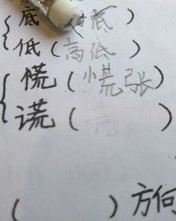 底（ 底）
低（高低）
慌（慌张）
谎（ ）
（ ）方何